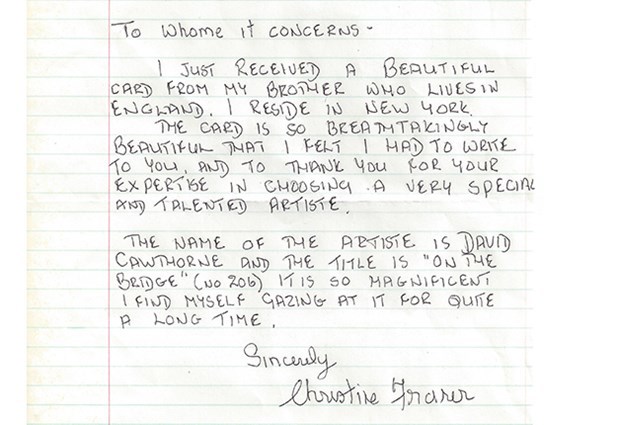 To Whome it CONCERNS -
I JUST RECEIVED A BEAUTIFUL
CARD FROM MY BROTHER WHO LIVES IN
ENGLAND. I RESIDE IN NEW YORK.
THE CARD IS SO BREATHTAKINGLY
BEAUTIFUL THAT I FELT I HAD TO WRITE
TO YOU, AND TO THANK YOU FOR YOUR
EXPERTISE IN CHOOSING A VERY SPECIAL
AND TALENTED ARTISTE.
THE NAME OF THE ARTISTE IS DAVID
CAWTHORNE AND THE TITLE IS "ON THE
BRIDGE" (NO 206) IT IS SO MAGNIFICENT
I FIND MYSELF GAZING AT IT FOR QUITE
A LONG TIME.
Sincerely
Christine Fraser